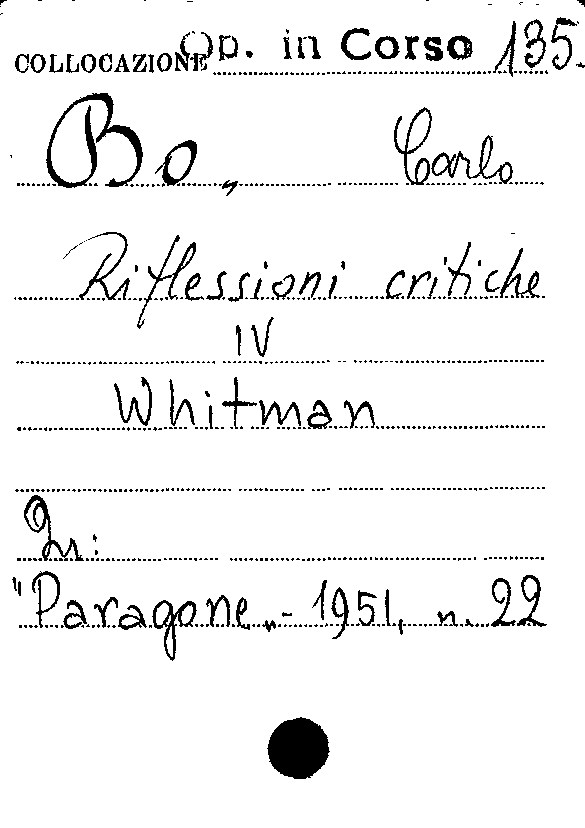 COLLOCAZIONE Op. in Corso 135.
Bo, Carlo
Riflessioni critiche
IV
Whitman
In:
"Paragone" - 1951, n. 22